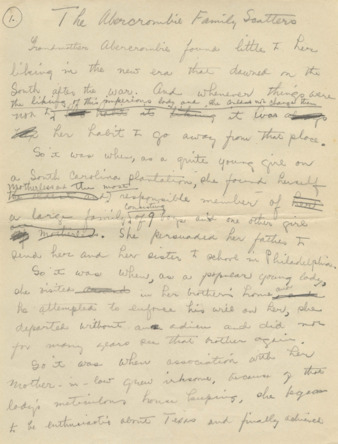 1.
The Abercrombie Family Scatters
Grandmother Abercrombie found little to her
liking in the new era that dawned on the
South after the war. And whenever things were
the liking of this imperious lady and she
not to it was
her habit to go away from that place.
So it was when, as a quite young girl on
a South Carolina plantation, she found herself
motherless & the most
responsible member of
a large family, including
of 9 boys and one other girl
She persuaded her father to
send her and her sister to school in Philadelphia.
So it was when, as a popular young lady,
she visited in her brother's home and
he attempted to enforce his will on her, she
departed without an adieu and did not
for many years see that brother again.
So it was when association with her
mother-in-law grew irksome, because of that
lady's meticulous house keeping, she began
to be enthusiastic about Texas and finally